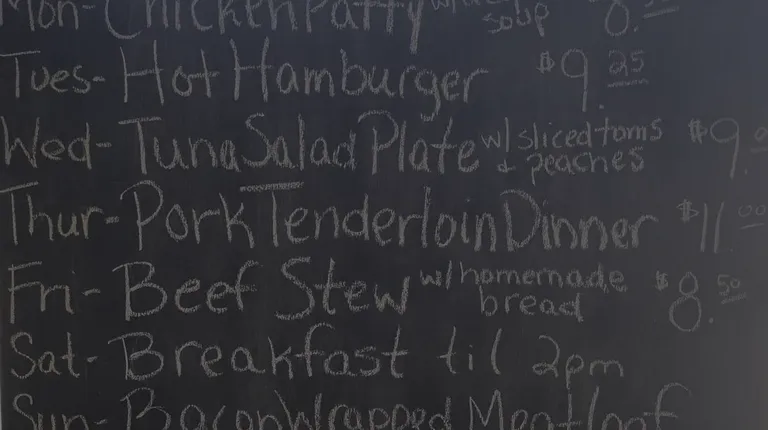 Mon- Chicken Patty soup 8.
Tues- Hot Hamburger $9.25
Wed- Tuna Salad Plate w/ sliced toms + peaches $9.
Thur- Pork Tenderloin Dinner $11.00
Fri- Beef Stew w/ homemade bread $8.50
Sat- Breakfast til 2pm
Sun- Bacon Wrapped Meatloaf